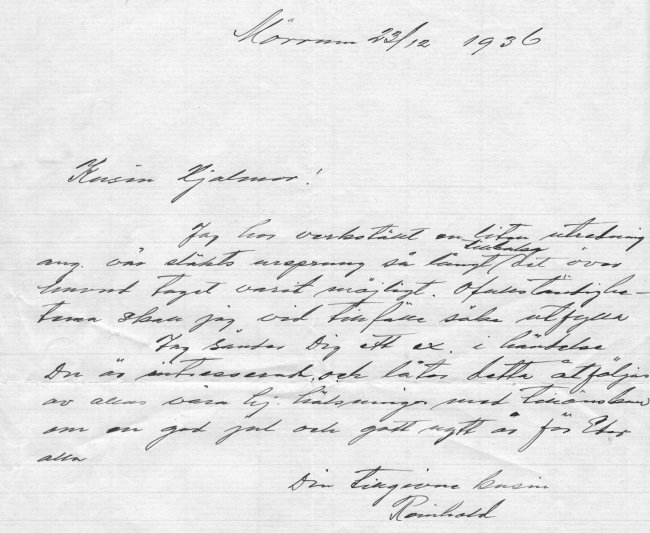 Mörrum 23/12 1936
Kusin Hjalmar!
Jag har verkställt en liten utredning
ang. vår släkts ursprung så långt tillbaka det över
huvud taget varit möjligt. Ofullständighe-
terna skall jag vid tillfälle söka utfylla
Jag sänder Dig ett ex. i händelse
Du är intresserad, och låter detta åtföljas
av allas våra hj. hälsningar med tillönskan
om en god jul och gott nytt år för Eder
alla
Din tillgivne kusin
Reinhold